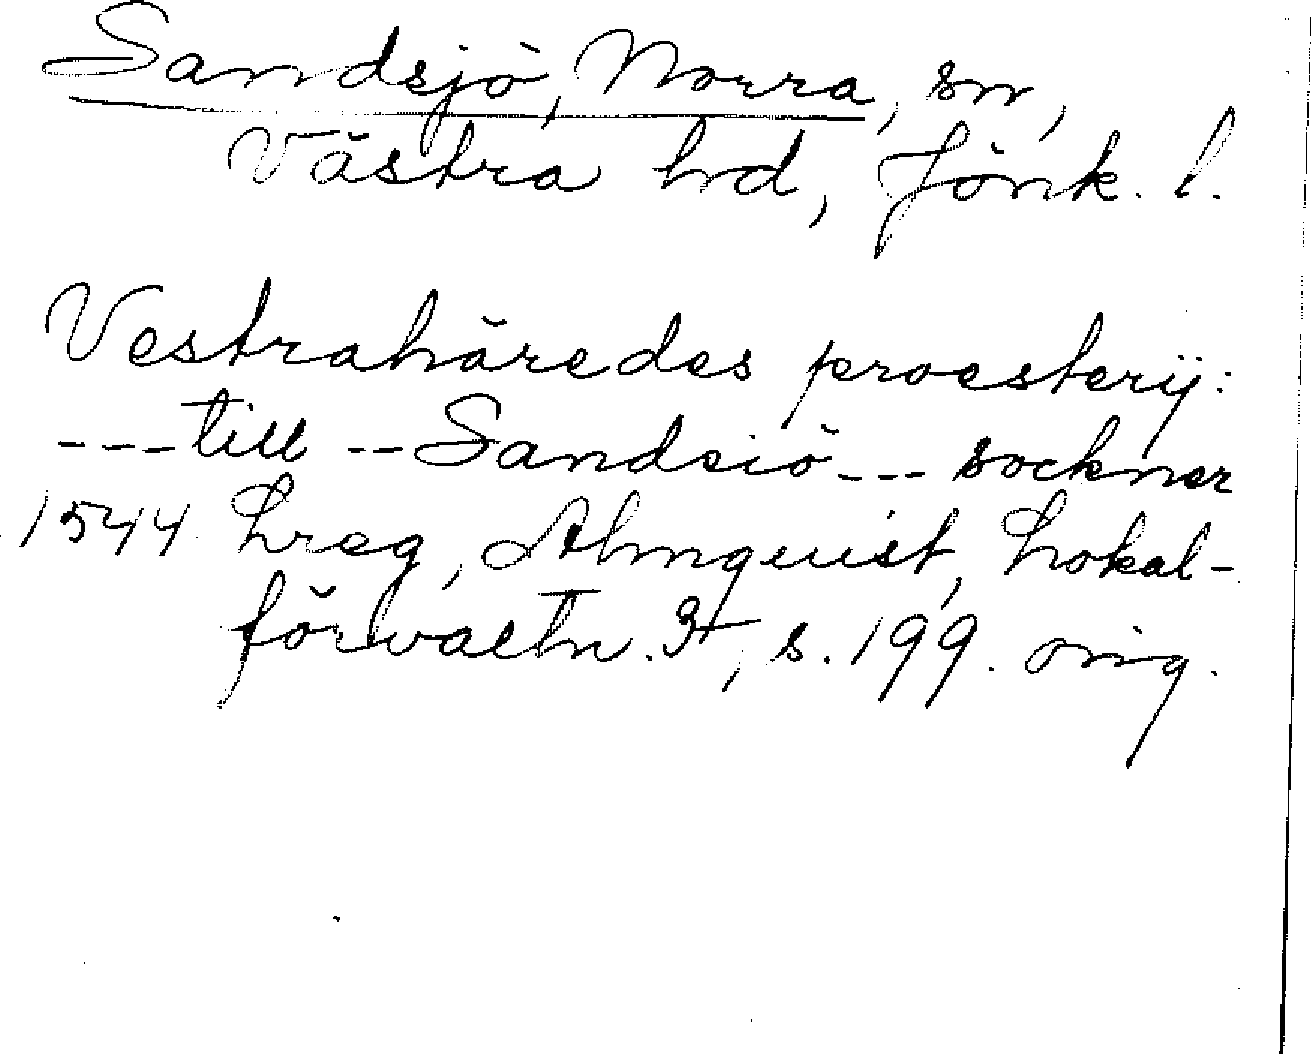 Sandsjö, Norra, sn,
Västra hd, Jönk. l.
Vestrahäredes proesterij:
---till--Sandsiö--- sockner
1544 Lreg, Almquist, Lokal-
förvaltn. 3, s. 199. orig.